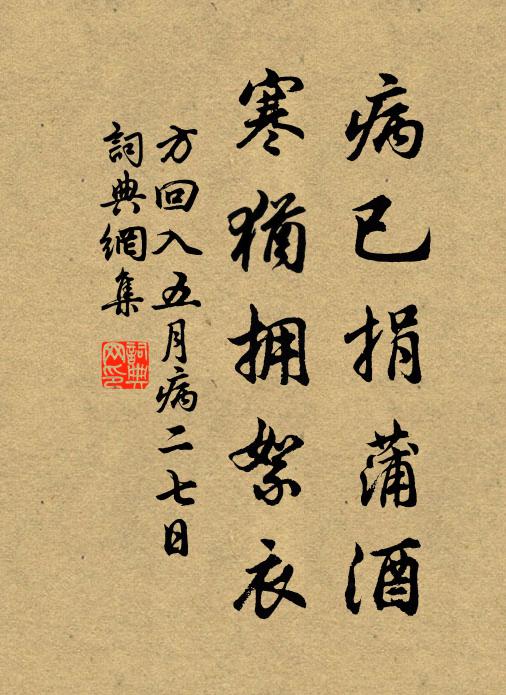 病已捐蒲酒
寒猶拥絮衣
方回入五月病二七日
詞典網集
詞典網印